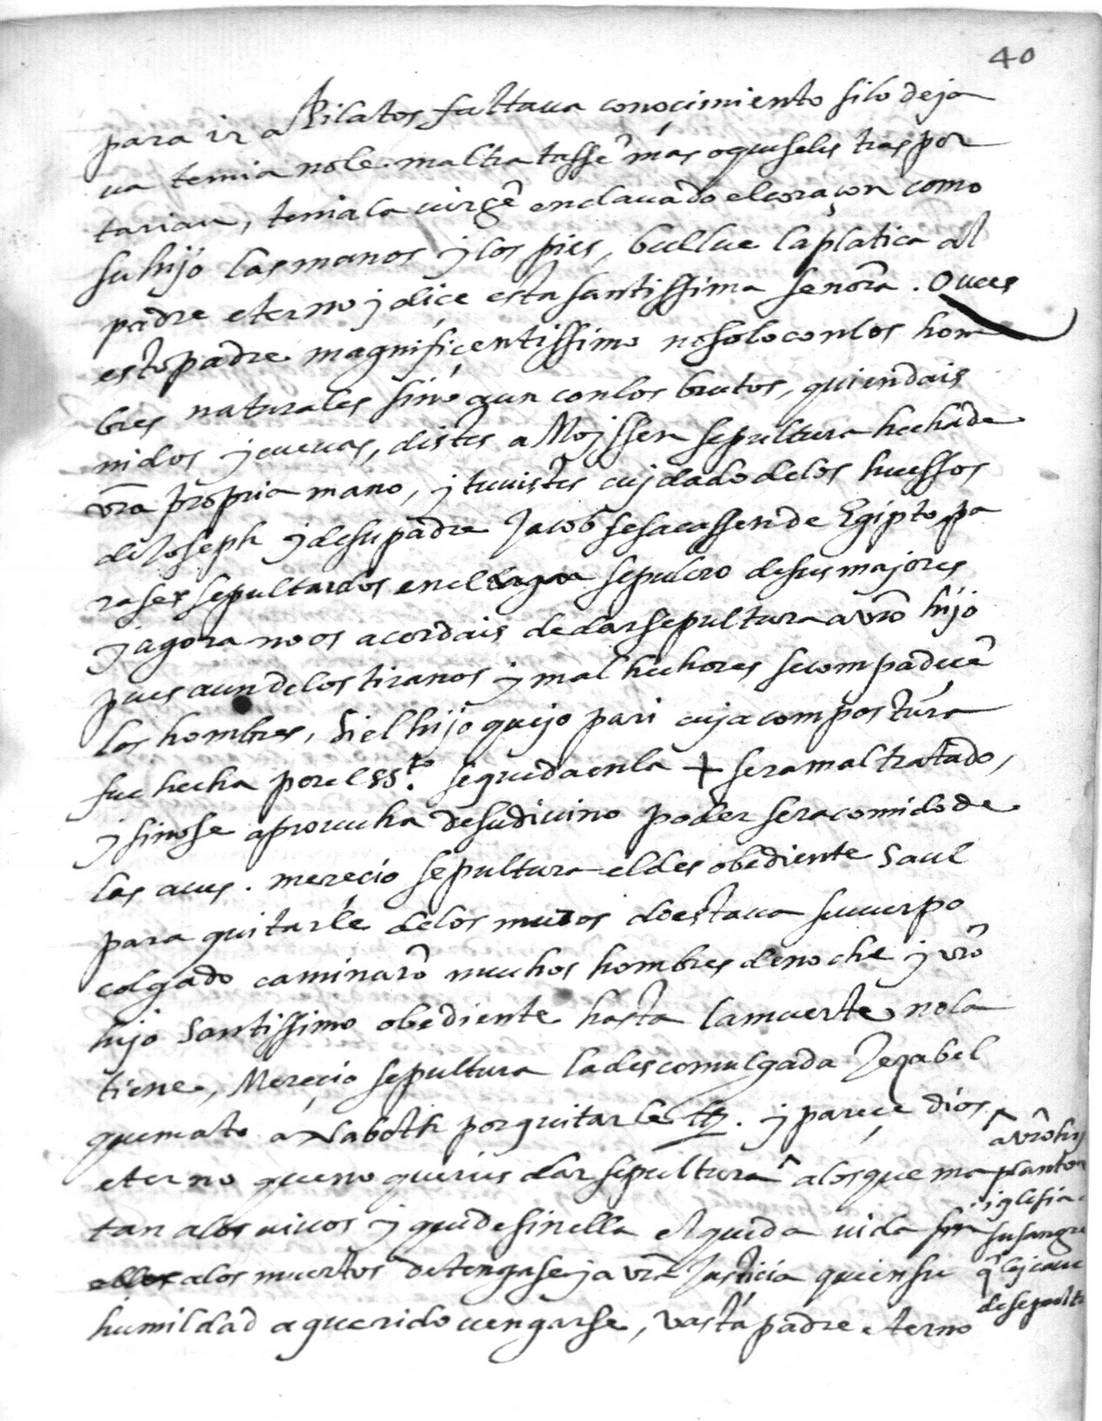 40
para ir a Pilatos faltaua conocimiento silo deja
ua temia nole maltratassẽ mas o que selo traspor
tarian, teniala virgẽ enclauado el coraçon como
su hijo las manos y los pies, buelue la platica al
padre eterno y dice esta santissima señora. O ues
esto padre magnificentissimo no solo con los hom
bres naturales sino aun con los brutos, quien dais
nidos y cueuas, distes a Moyssen sepultura hecha de
vr̃a propria mano, y tuuistes cuydado de los huessos
de Joseph y de su padre Jacob se sacassen de Egipto pa
ra ser sepultados en el sepulcro de sus majores
y agora no os acordais de dar sepultura a vrõ hijo
pues aun de los tiranos y mal hechores se compadecẽ
los hombres, Si el hijo que yo pari cuja compostura
fue hecha por el SS.to se queda en la + sera mal tratado,
y sino se aprouecha de su diuino poder sera comido de
las aues. merecio sepultura el desobediente Saul
para quitarle de los muros do estaua su cuerpo
colgado caminarõ muchos hombres de noche y vrõ
hijo Santissimo obediente hasta la muerte no la
tiene, Mereçio sepultura la descomulgada Jezabel
que mato a Naboth por quitarle . y pareçe dios
eterno que no quereis dar sepultura ^ a los que ma
tan a los uiuos y quede sin ella el que da vida
a los muertos detengase ja vr̃a Justicia quien su
humildad a querido uengarse, vasta padre eterno
^ a vrõ hij
planto
iglesia
su sangre
q̃
de sepult